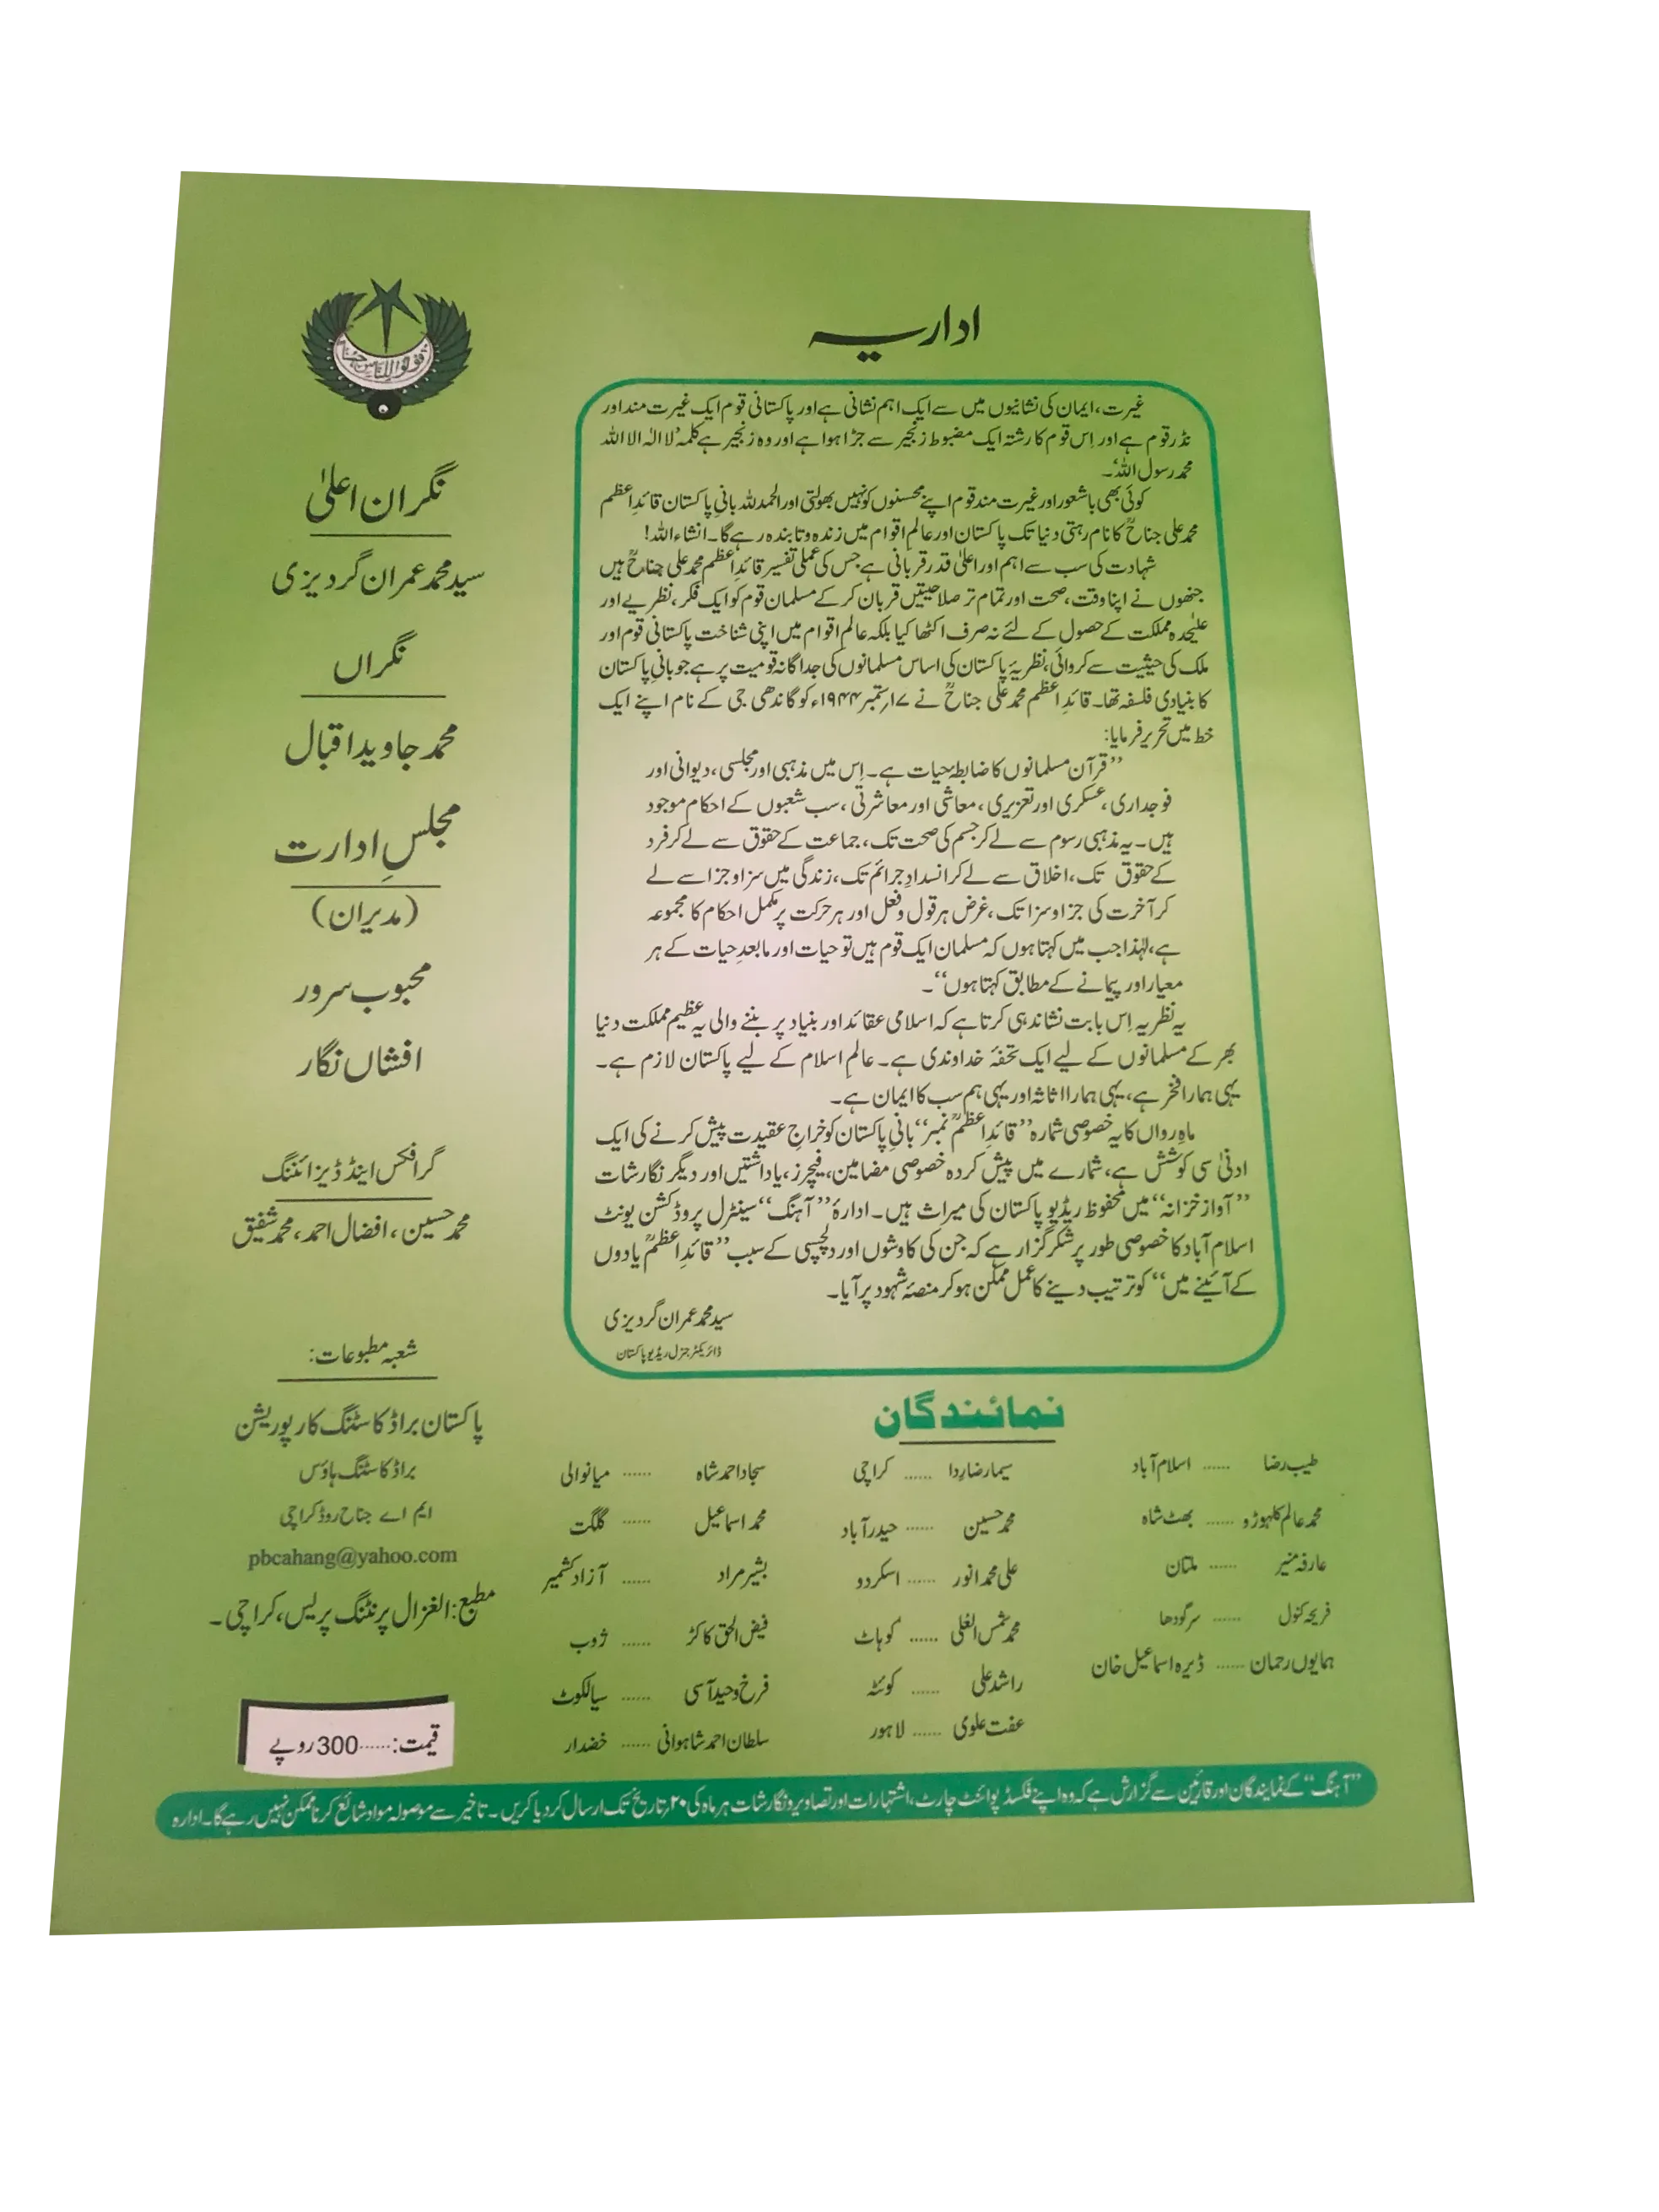 اداریہ
غیرت، ایمان کی نشانیوں میں سے ایک اہم نشانی ہے اور پاکستانی قوم ایک غیرت مند اور
نڈر قوم ہے اور اِس قوم کا رشتہ ایک مضبوط زنجیر سے جڑا ہوا ہے اور وہ زنجیر ہے کلمہ ’لا الہٰ الا اللہ
محمد رسول اللہ‘۔
کوئی بھی باشعور اور غیرت مند قوم اپنے محسنوں کو نہیں بھولتی اور الحمدللہ بانیِ پاکستان قائدِ اعظم
محمد علی جناحؒ کا نام رہتی دنیا تک پاکستان اور عالمِ اقوام میں زندہ و تابندہ رہے گا۔ انشاء اللہ!
شہادت کی سب سے اہم اور اعلیٰ قدر قربانی ہے جس کی عملی تفسیر قائدِ اعظم محمد علی جناحؒ ہیں
جنھوں نے اپنا وقت، صحت اور تمام تر صلاحیتیں قربان کر کے مسلمان قوم کو ایک فکر، نظریے اور
علیٰحدہ مملکت کے حصول کے لئے نہ صرف اکٹھا کیا بلکہ عالمِ اقوام میں اپنی شناخت پاکستانی قوم اور
ملک کی حیثیت سے کروائی، نظریۂ پاکستان کی اساس مسلمانوں کی جداگانہ قومیت پر ہے جو بانیِ پاکستان
کا بنیادی فلسفہ تھا۔ قائدِ اعظم محمد علی جناحؒ نے ۱۷؍ستمبر ۱۹۴۴ء کو گاندھی جی کے نام اپنے ایک
خط میں تحریر فرمایا:
’’قرآن مسلمانوں کا ضابطۂ حیات ہے۔ اِس میں مذہبی اور مجلسی، دیوانی اور
فوجداری، عسکری اور تعزیری، معاشی اور معاشرتی، سب شعبوں کے احکام موجود
ہیں۔ یہ مذہبی رسوم سے لے کر جسم کی صحت تک، جماعت کے حقوق سے لے کر فرد
کے حقوق تک، اخلاق سے لے کر انسدادِ جرائم تک، زندگی میں سزا و جزا سے لے
کر آخرت کی جزا و سزا تک، غرض ہر قول و فعل اور ہر حرکت پر مکمل احکام کا مجموعہ
ہے، لہٰذا جب میں کہتا ہوں کہ مسلمان ایک قوم ہیں تو حیات اور مابعدِ حیات کے ہر
معیار اور پیمانے کے مطابق کہتا ہوں‘‘۔
یہ نظریہ اِس بابت نشاندہی کرتا ہے کہ اسلامی عقائد اور بنیاد پر بننے والی یہ عظیم مملکت دنیا
بھر کے مسلمانوں کے لیے ایک تحفۂ خداوندی ہے۔ عالمِ اسلام کے لیے پاکستان لازم ہے۔
یہی ہمارا فخر ہے، یہی ہمارا اثاثہ اور یہی ہم سب کا ایمان ہے۔
ماہِ رواں کا یہ خصوصی شمارہ ’’قائدِ اعظمؒ نمبر‘‘ بانیِ پاکستان کو خراجِ عقیدت پیش کرنے کی ایک
ادنیٰ سی کوشش ہے، شمارے میں پیش کردہ خصوصی مضامین، فیچرز، یاداشتیں اور دیگر نگارشات
’’آواز خزانہ‘‘ میں محفوظ ریڈیو پاکستان کی میراث ہیں۔ ادارۂ ’’آہنگ‘‘ سینٹرل پروڈکشن یونٹ
اسلام آباد کا خصوصی طور پر شکر گزار ہے کہ جن کی کاوشوں اور دلچسپی کے سبب ’’قائدِ اعظمؒ یادوں
کے آئینے میں‘‘ کو ترتیب دینے کا عمل ممکن ہو کر منصۂ شہود پر آیا۔
سید محمد عمران گردیزی
ڈائریکٹر جنرل ریڈیو پاکستان
قولوا للناس حسنا
نگران اعلیٰ
سید محمد عمران گردیزی
نگراں
محمد جاوید اقبال
مجلسِ ادارت
(مدیران)
محبوب سرور
افشاں نگار
گرافکس اینڈ ڈیزائننگ
محمد حسین، افضال احمد، محمد شفیق
شعبہ مطبوعات:
پاکستان براڈکاسٹنگ کارپوریشن
براڈکاسٹنگ ہاؤس
ایم اے جناح روڈ کراچی
pbcahang@yahoo.com
مطبع: الغزال پرنٹنگ پریس، کراچی۔
قیمت:......300 روپے
نمائندگان
طیب رضا ...... اسلام آباد
محمد عالم کلہوڑو ...... بھٹ شاہ
عارفہ منیر ...... ملتان
فریحہ کنول ...... سرگودھا
ہمایوں رحمان ...... ڈیرہ اسماعیل خان
سیما رضا رِدا ...... کراچی
محمد حسین ...... حیدرآباد
علی محمد انور ...... اسکردو
محمد شمس الغلی ...... کوہاٹ
راشد علی ...... کوئٹہ
عفت علوی ...... لاہور
سجاد احمد شاہ ...... میانوالی
محمد اسماعیل ...... گلگت
بشیر مراد ...... آزاد کشمیر
فیض الحق کاکڑ ...... ژوب
فرخ وحید آسی ...... سیالکوٹ
سلطان احمد شاہوانی ...... خضدار
’’آہنگ‘‘ کے نمایندگان اور قارئین سے گزارش ہے کہ وہ اپنے فکسڈ پوائنٹ چارٹ، اشتہارات اور تصاویر و نگارشات ہر ماہ کی ۲۰؍تاریخ تک ارسال کر دیا کریں۔ تاخیر سے موصولہ مواد شائع کرنا ممکن نہیں رہے گا۔ ادارہ